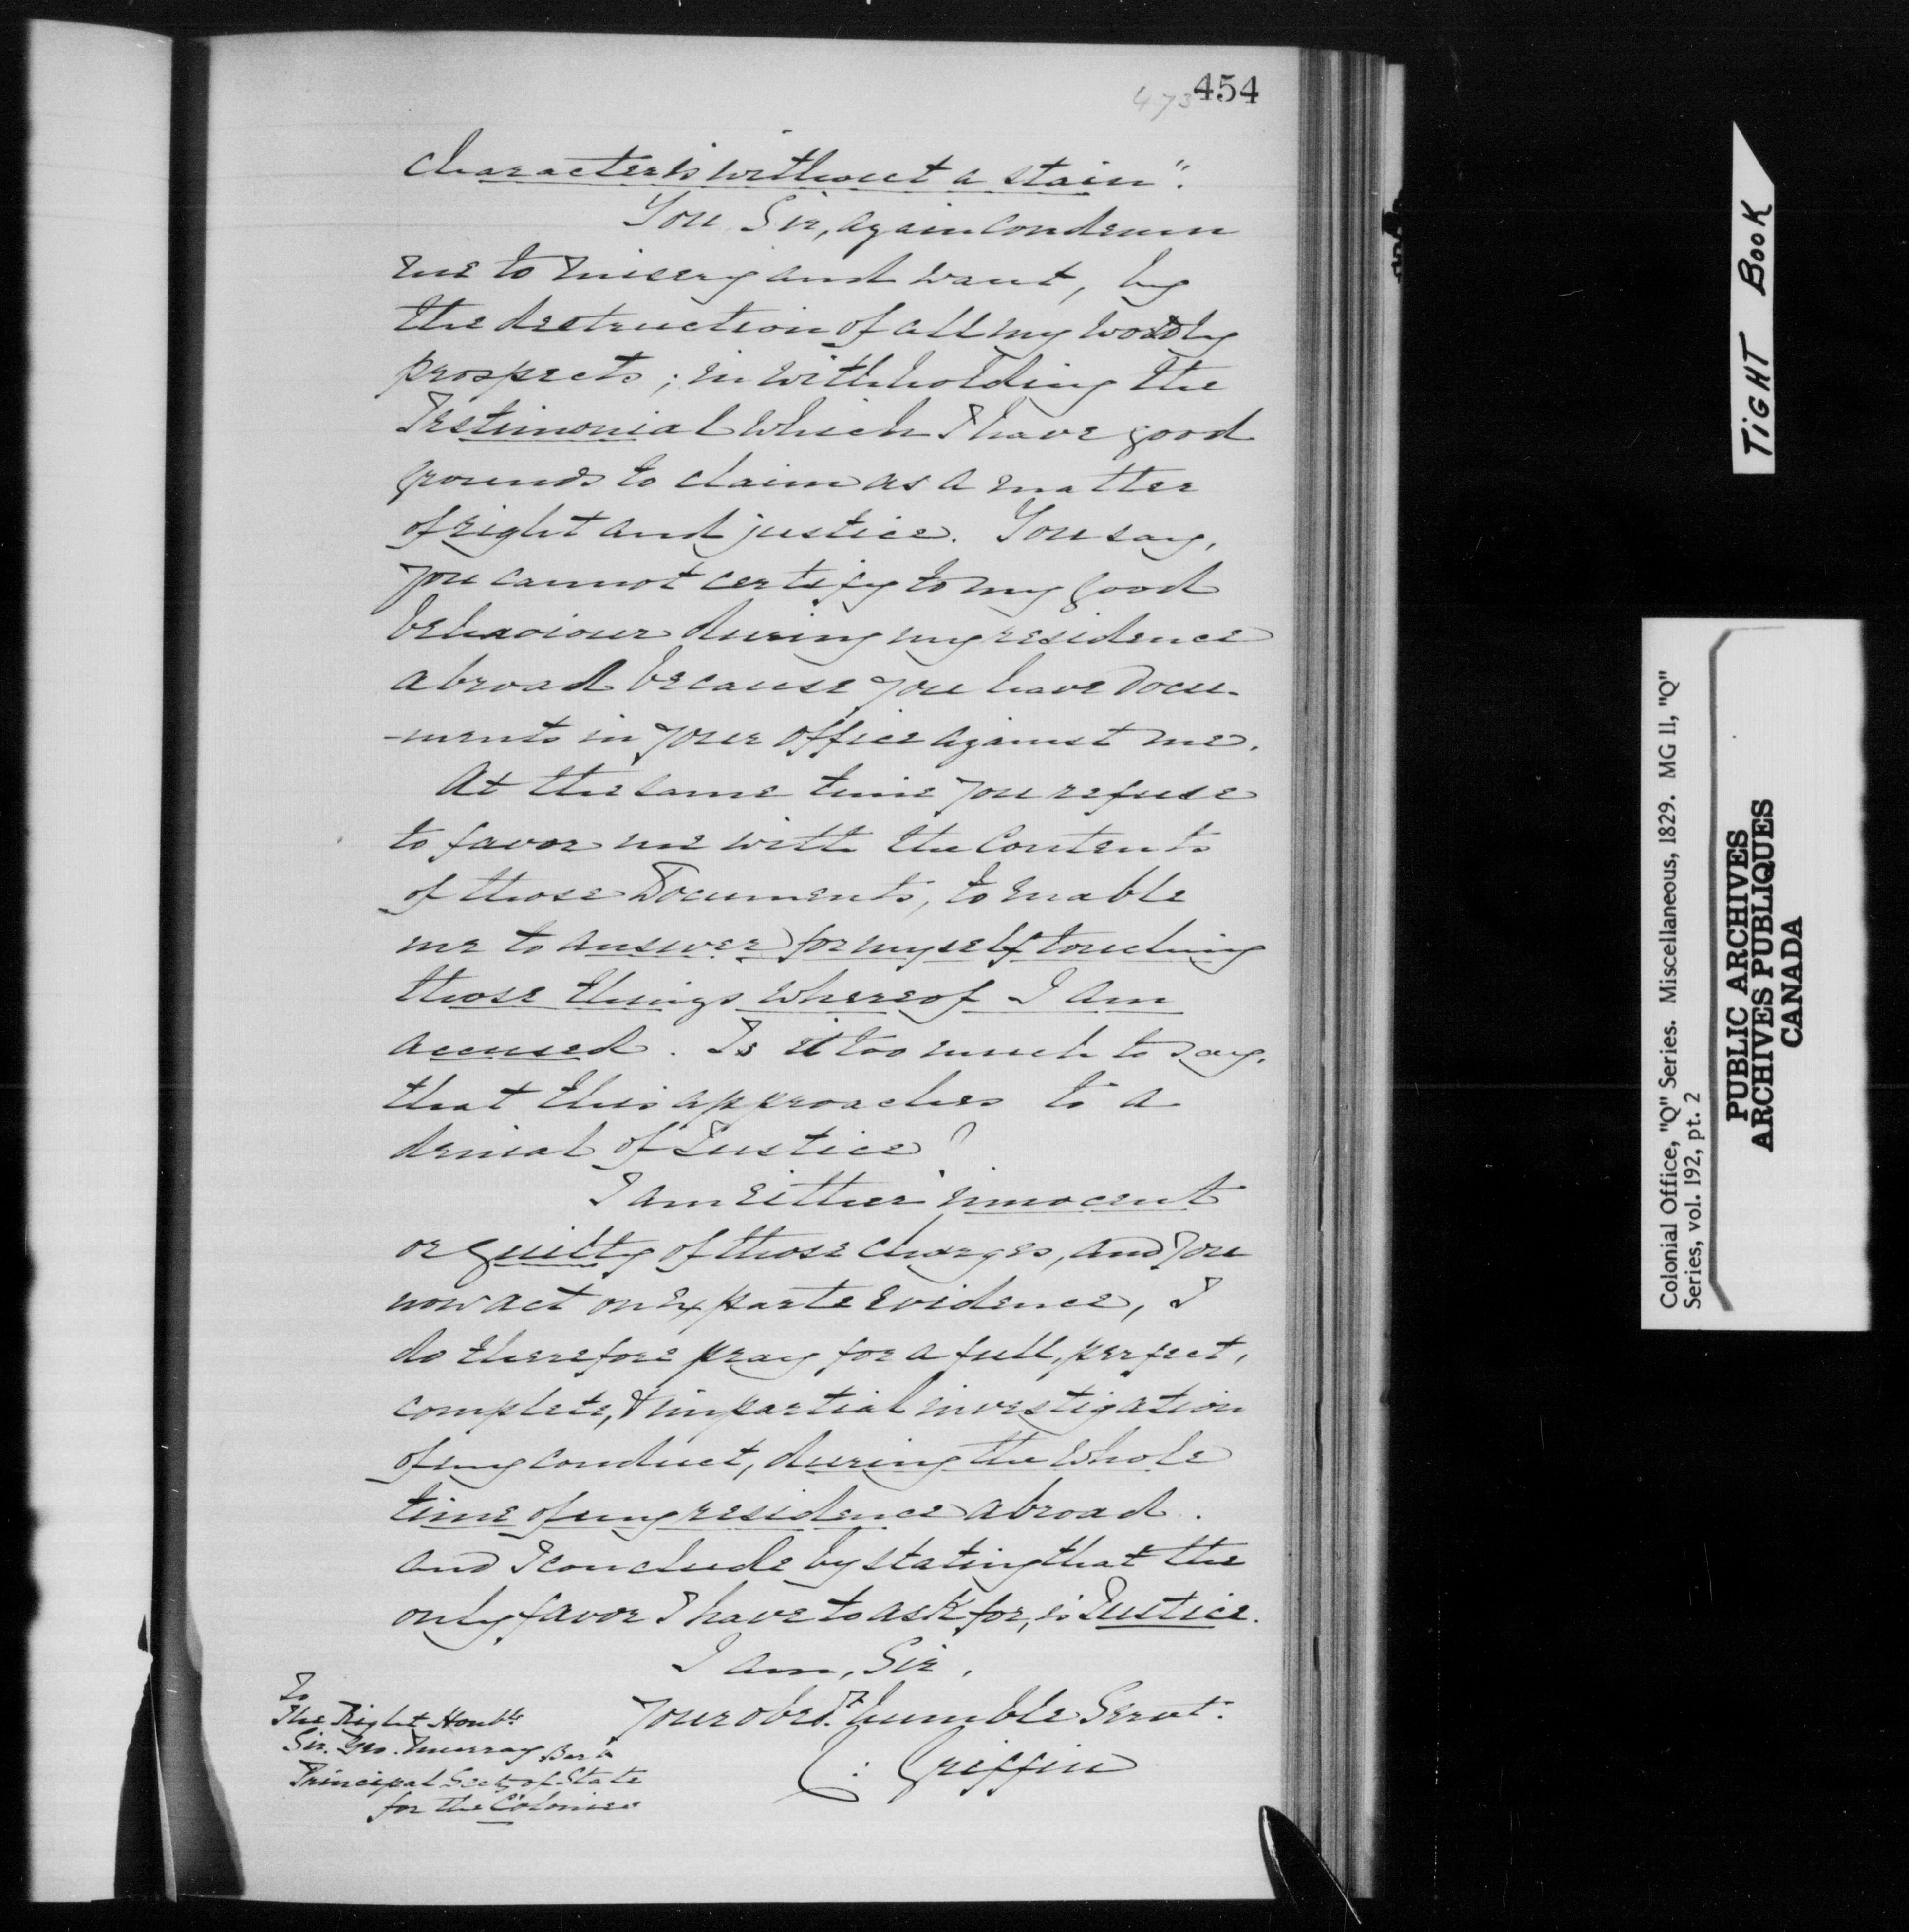 473 454
character is without a stain".
You Sir, again condemn
me to misery and want, by
the destruction of all my wordly
prospects; in withholding the
Testimonial which I have good
grounds to claim as a matter
of right and justice. You say,
you cannot certify to my good
behaviour during my residence
abroad because you have Docu-
-ments in your office against me.
At the same time you refuse
to favor me with the Contents
of those Documents, to enable
me to answer for myself touching
those things whereof I am
accused. Is it too much to say,
that this approaches to a
denial of Justice?
I am either innocent
or guilty of those charges, and you
now act on Ex parte Evidence, I
do therefore pray for a full, perfect,
complete, & impartial investigation
of my conduct, during the whole
time of my residence abroad.
And I conclude by stating that the
only favor I have to ask for, is Justice.
I am, Sir,
Your obedt. humble Servt.
C: Griffin
To
The Right Honble
Sir. Geo. Murray Bart
Principal Secty of State
for the Colonies
TIGHT BOOK
Colonial Office, "Q" Series. Miscellaneous, 1829. MG 11, "Q"
Series, vol. 192, pt. 2
PUBLIC ARCHIVES
ARCHIVES PUBLIQUES
CANADA